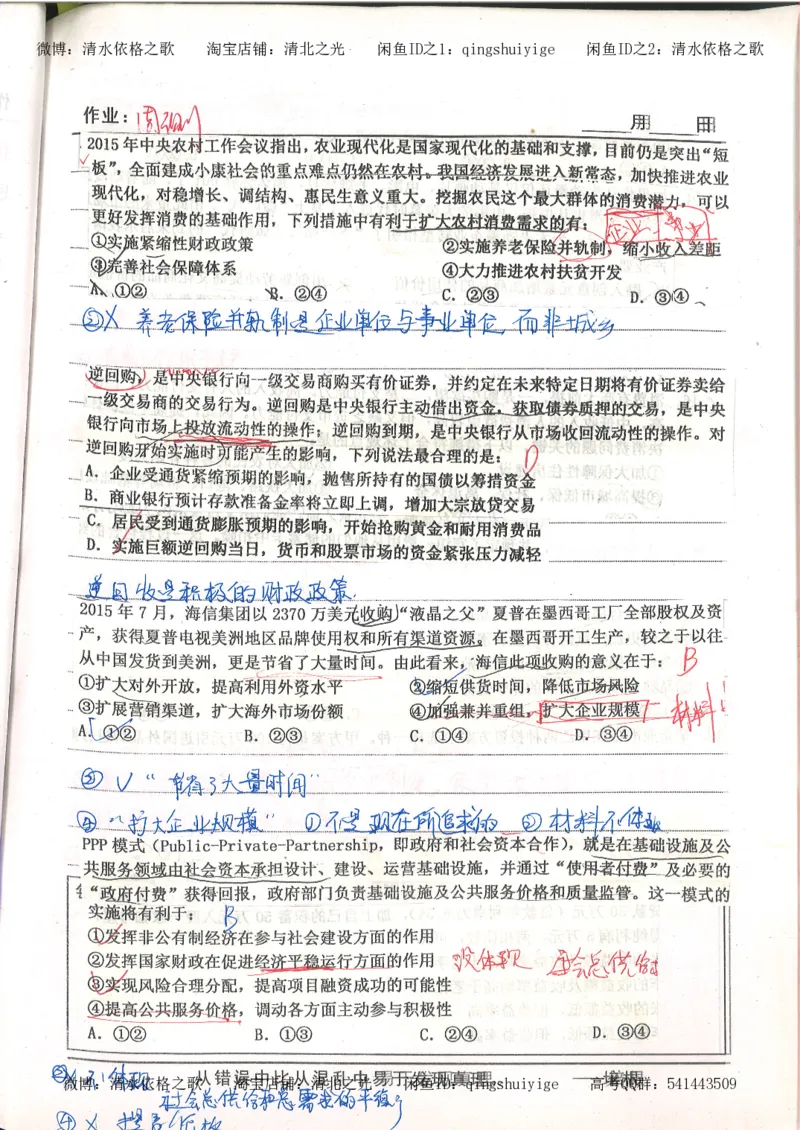 微博：清水依格之歌 淘宝店铺：清北之光 闲鱼ID之1：qingshuiyige 闲鱼ID之2：清水依格之歌
作业：周研训
月 日
2015年中央农村工作会议指出，农业现代化是国家现代化的基础和支撑，目前仍是突出“短
板”，全面建成小康社会的重点难点仍然在农村。我国经济发展进入新常态，加快推进农业
现代化，对稳增长、调结构、惠民生意义重大。挖掘农民这个最大群体的消费潜力，可以
更好发挥消费的基础作用，下列措施中有利于扩大农村消费需求的有：
企业 事业
①实施紧缩性财政政策 ②实施养老保险并轨制，缩小收入差距
③完善社会保障体系 ④大力推进农村扶贫开发
A、①② B．②④ C．②③ D．③④
②X 养老保险并轨制是企业单位与事业单位，而非城乡
逆回购，是中央银行向一级交易商购买有价证券，并约定在未来特定日期将有价证券卖给
一级交易商的交易行为。逆回购是中央银行主动借出资金，获取债券质押的交易，是中央
银行向市场上投放流动性的操作；逆回购到期，是中央银行从市场收回流动性的操作。对
逆回购开始实施时可能产生的影响，下列说法最合理的是： D
A．企业受通货紧缩预期的影响，抛售所持有的国债以筹措资金
B．商业银行预计存款准备金率将立即上调，增加大宗放贷交易
C．居民受到通货膨胀预期的影响，开始抢购黄金和耐用消费品
D．实施巨额逆回购当日，货币和股票市场的资金紧张压力减轻
逆回收是积极的财政政策
2015年7月，海信集团以2370万美元收购“液晶之父”夏普在墨西哥工厂全部股权及资
产，获得夏普电视美洲地区品牌使用权和所有渠道资源。在墨西哥开工生产，较之于以往
从中国发货到美洲，更是节省了大量时间。由此看来，海信此项收购的意义在于： B
①扩大对外开放，提高利用外资水平 ②缩短供货时间，降低市场风险
③扩展营销渠道，扩大海外市场份额 ④加强兼并重组，扩大企业规模 材料
A．①② B．②③ C．①④ D．③④
② √ “节省了大量时间”
④ “扩大企业规模” ①不是现在所追求的 ②材料不体现
PPP模式（Public-Private-Partnership，即政府和社会资本合作），就是在基础设施及公
共服务领域由社会资本承担设计、建设、运营基础设施，并通过“使用者付费”及必要的
“政府付费”获得回报，政府部门负责基础设施及公共服务价格和质量监管。这一模式的
实施将有利于： B
①发挥非公有制经济在参与社会建设方面的作用
②发挥国家财政在促进经济平稳运行方面的作用 没体现 社会总供给
③实现风险合理分配，提高项目融资成功的可能性
④提高公共服务价格，调动各方面主动参与积极性
A．①② B．①③ C．②④ D．③④
②X 不体现 从错误中比从混乱中易于发现真理 ——培根
微博：清水依格之歌 淘宝店铺：清北之光 闲鱼ID之1：qingshuiyige 高考QQ群：541443509
社会总供给和总需求的平衡
④X 提高价格